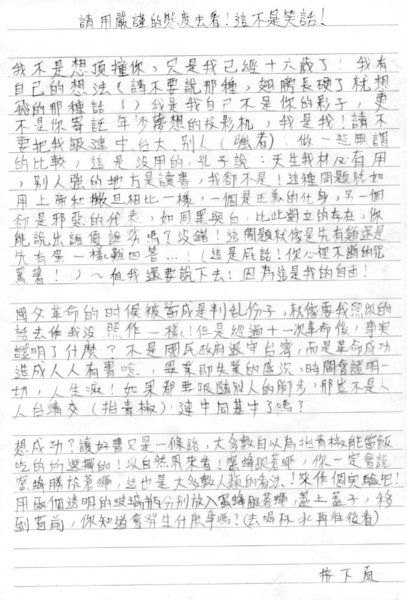 請用嚴謹的態度去看！這不是笑話！
我不是想頂撞你，只是我已經十六歲了！我有
自己的想法（請不要說那種，翅膀長硬了就想
飛的那種話！）我是我自己不是你的影子，更
不是你寄託年少夢想的投影机，我是我！請不
要把我跟建中、台大、別人（強者），做一起無謂
的比較，這是沒用的，孔子說：天生我材必有用
，別人強的地方是讀書，我卻不是！這種問題就如
用上帝和撒旦相比一樣，一個是正義的化身，另一個
卻是邪惡的代表，如同黑與白，比此獨立的存在，你
能說出誰優誰劣嗎？沒錯！這問題就像是先有雞還是
先有蛋一樣難回答...！（這是屁話！你心裡不斷的咒
罵著！）～但我還要說下去！因為這是我的自由！
國父革命的时候被當成是判乱份子，就像要我照你的
話去做我沒照作一樣！但是經過十一次革命後，事实
證明了什麼？不是國民政府退守台灣，而是革命成功
造成人人有書唸，畢業即失業的盛況，時間會證明一
切，人生嘛！如果都要跟隨別人的腳步，那豈不是人
人台清交（拍青椒），建中同基中了嗎？
想成功？讀好書又是一條路，大多數自以為拍青椒能當飯
吃的的選擇的！以自然界來看！蜜蜂跟蒼蠅，你一定會說
蜜蜂勝於蒼蠅，這也是大多數人類的看法！來作個实驗吧！
用兩個透明的玻璃瓶分別放入蜜蜂跟蒼蠅，蓋上蓋子，移
到窗前，你知道會发生什麼事嗎？（去喝杯水再往後看）
按下頁